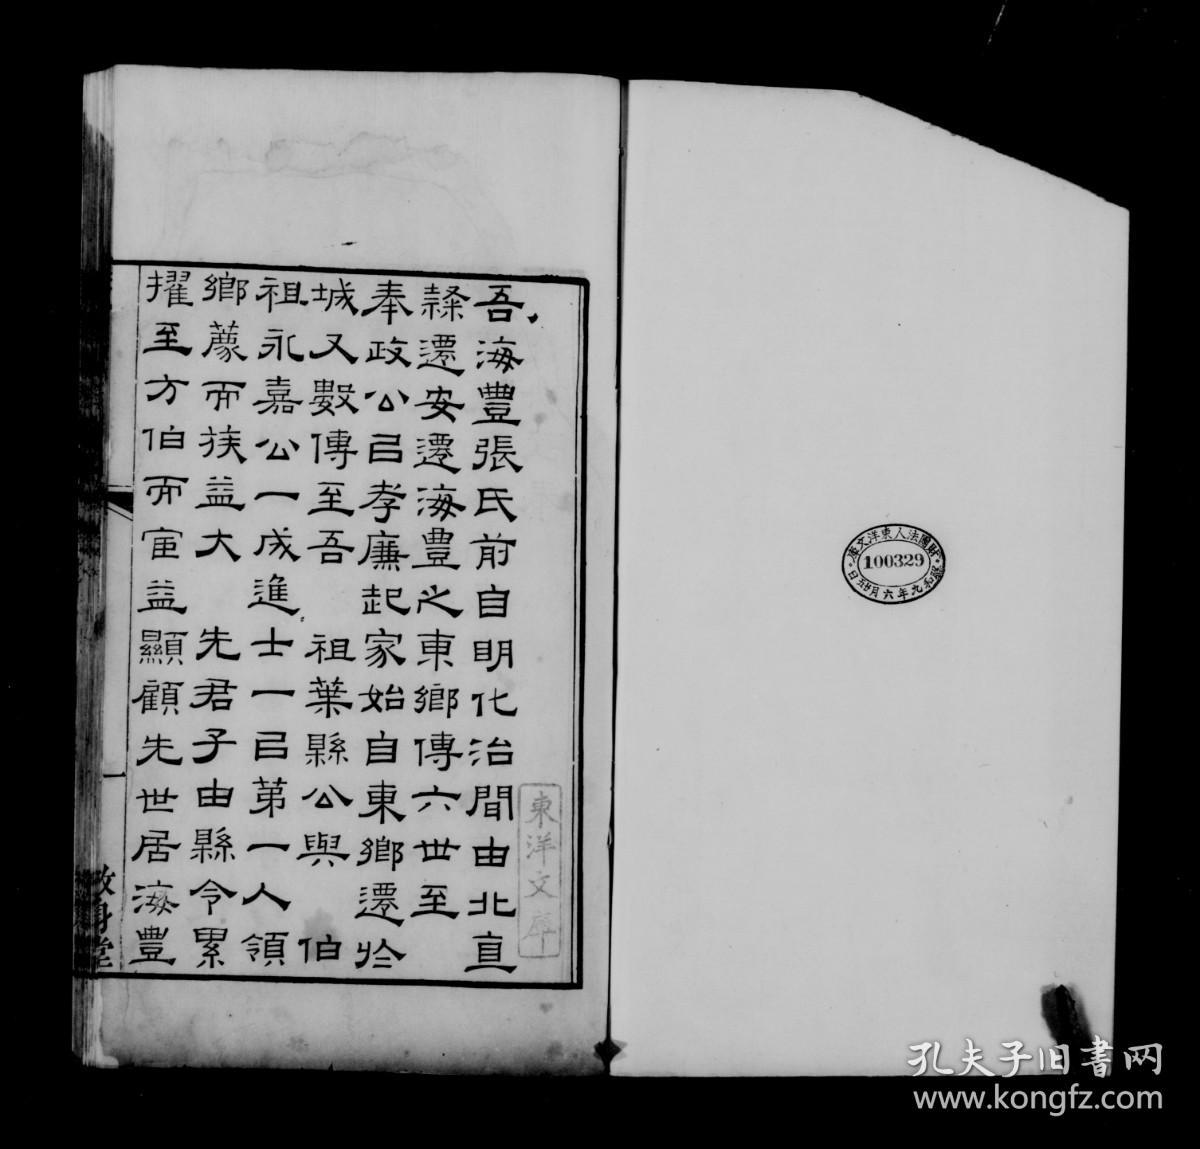 吾海豐張氏前自明化治間由北直
隸遷安遷海豐之東鄉傳六世至
奉政公㠯孝廉起家始自東鄉遷於
城又數傳至吾　祖葉縣公與　伯
祖永嘉公一成進士一㠯第一人領
鄉薦而族益大　先君子由縣令累
擢至方伯而宦益顯顧先世居海豐
一
敬身堂
東洋文庫
財團法人東洋文庫
100329
昭和九年六月廿五日
孔夫子旧書网
www.kongfz.com